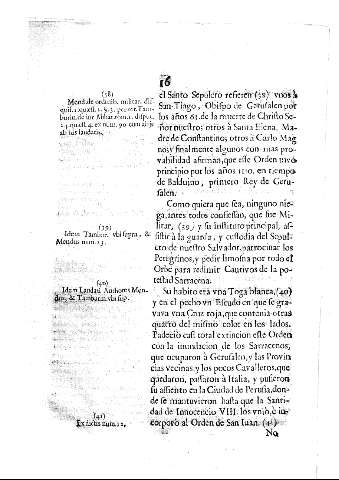 16
(38)
Mend. de ordinib. militar. dis-
quis. 1. quæst. 1. §. 3. per tot. Tam-
burin. de iur. Abbat. tom. 2. disput.
24. quæst. 4. ex num. 90. cum alijs
ab his laudatis.
el Santo Sepulcro refieren (38) vnos à
San-Tiago, Obispo de Gerusalen por
los años 63. de la muerte de Christo Se-
ñor nuestro; otros à Santa Elena, Ma-
dre de Constantino; otros à Carlo Mag
no; y finalmente algunos con mas pro-
vabilidad afirman, que este Orden tuvo
principio por los años 1110. en tiempo
de Balduino, primero Rey de Geru-
salen.
(39)
Idem Tambur. vbi supra, &
Mendus num. 13.
Como quiera que sea, ninguno nie-
ga, antes todos confiessan, que fue Mi-
litar, (39) y su instituto principal, as-
sistir à la guarda, y custodia del Sepul-
cro de nuestro Salvador, patrocinar los
Peregrinos, y pedir limosna por todo el
Orbe para redimir Cautivos de la po-
testad Sarracena.
(40)
Idem Laudati Authores Men-
dus, & Tamburin. vbi sup.
Su habito era vna Toga blanca, (40)
y en el pecho vn Escudo en que se gra-
vava vna Cruz roja, que contenia otras
quatro del mismo color en los lados.
Padeciò casi total extincion este Orden
con la inundacion de los Sarracenos,
que ocuparon à Gerusalen, y las Provin
cias vecinas, y los pocos Cavalleros, que
quedaron, passaron à Italia, y pusieron
su assiento en la Ciudad de Perusa, don-
de se mantuvieron hasta que la Santi-
dad de Innocencio VIII. los vniò, è in-
corporò al Orden de San Iuan. (41)
(41)
Ex dictis num. 12.
No